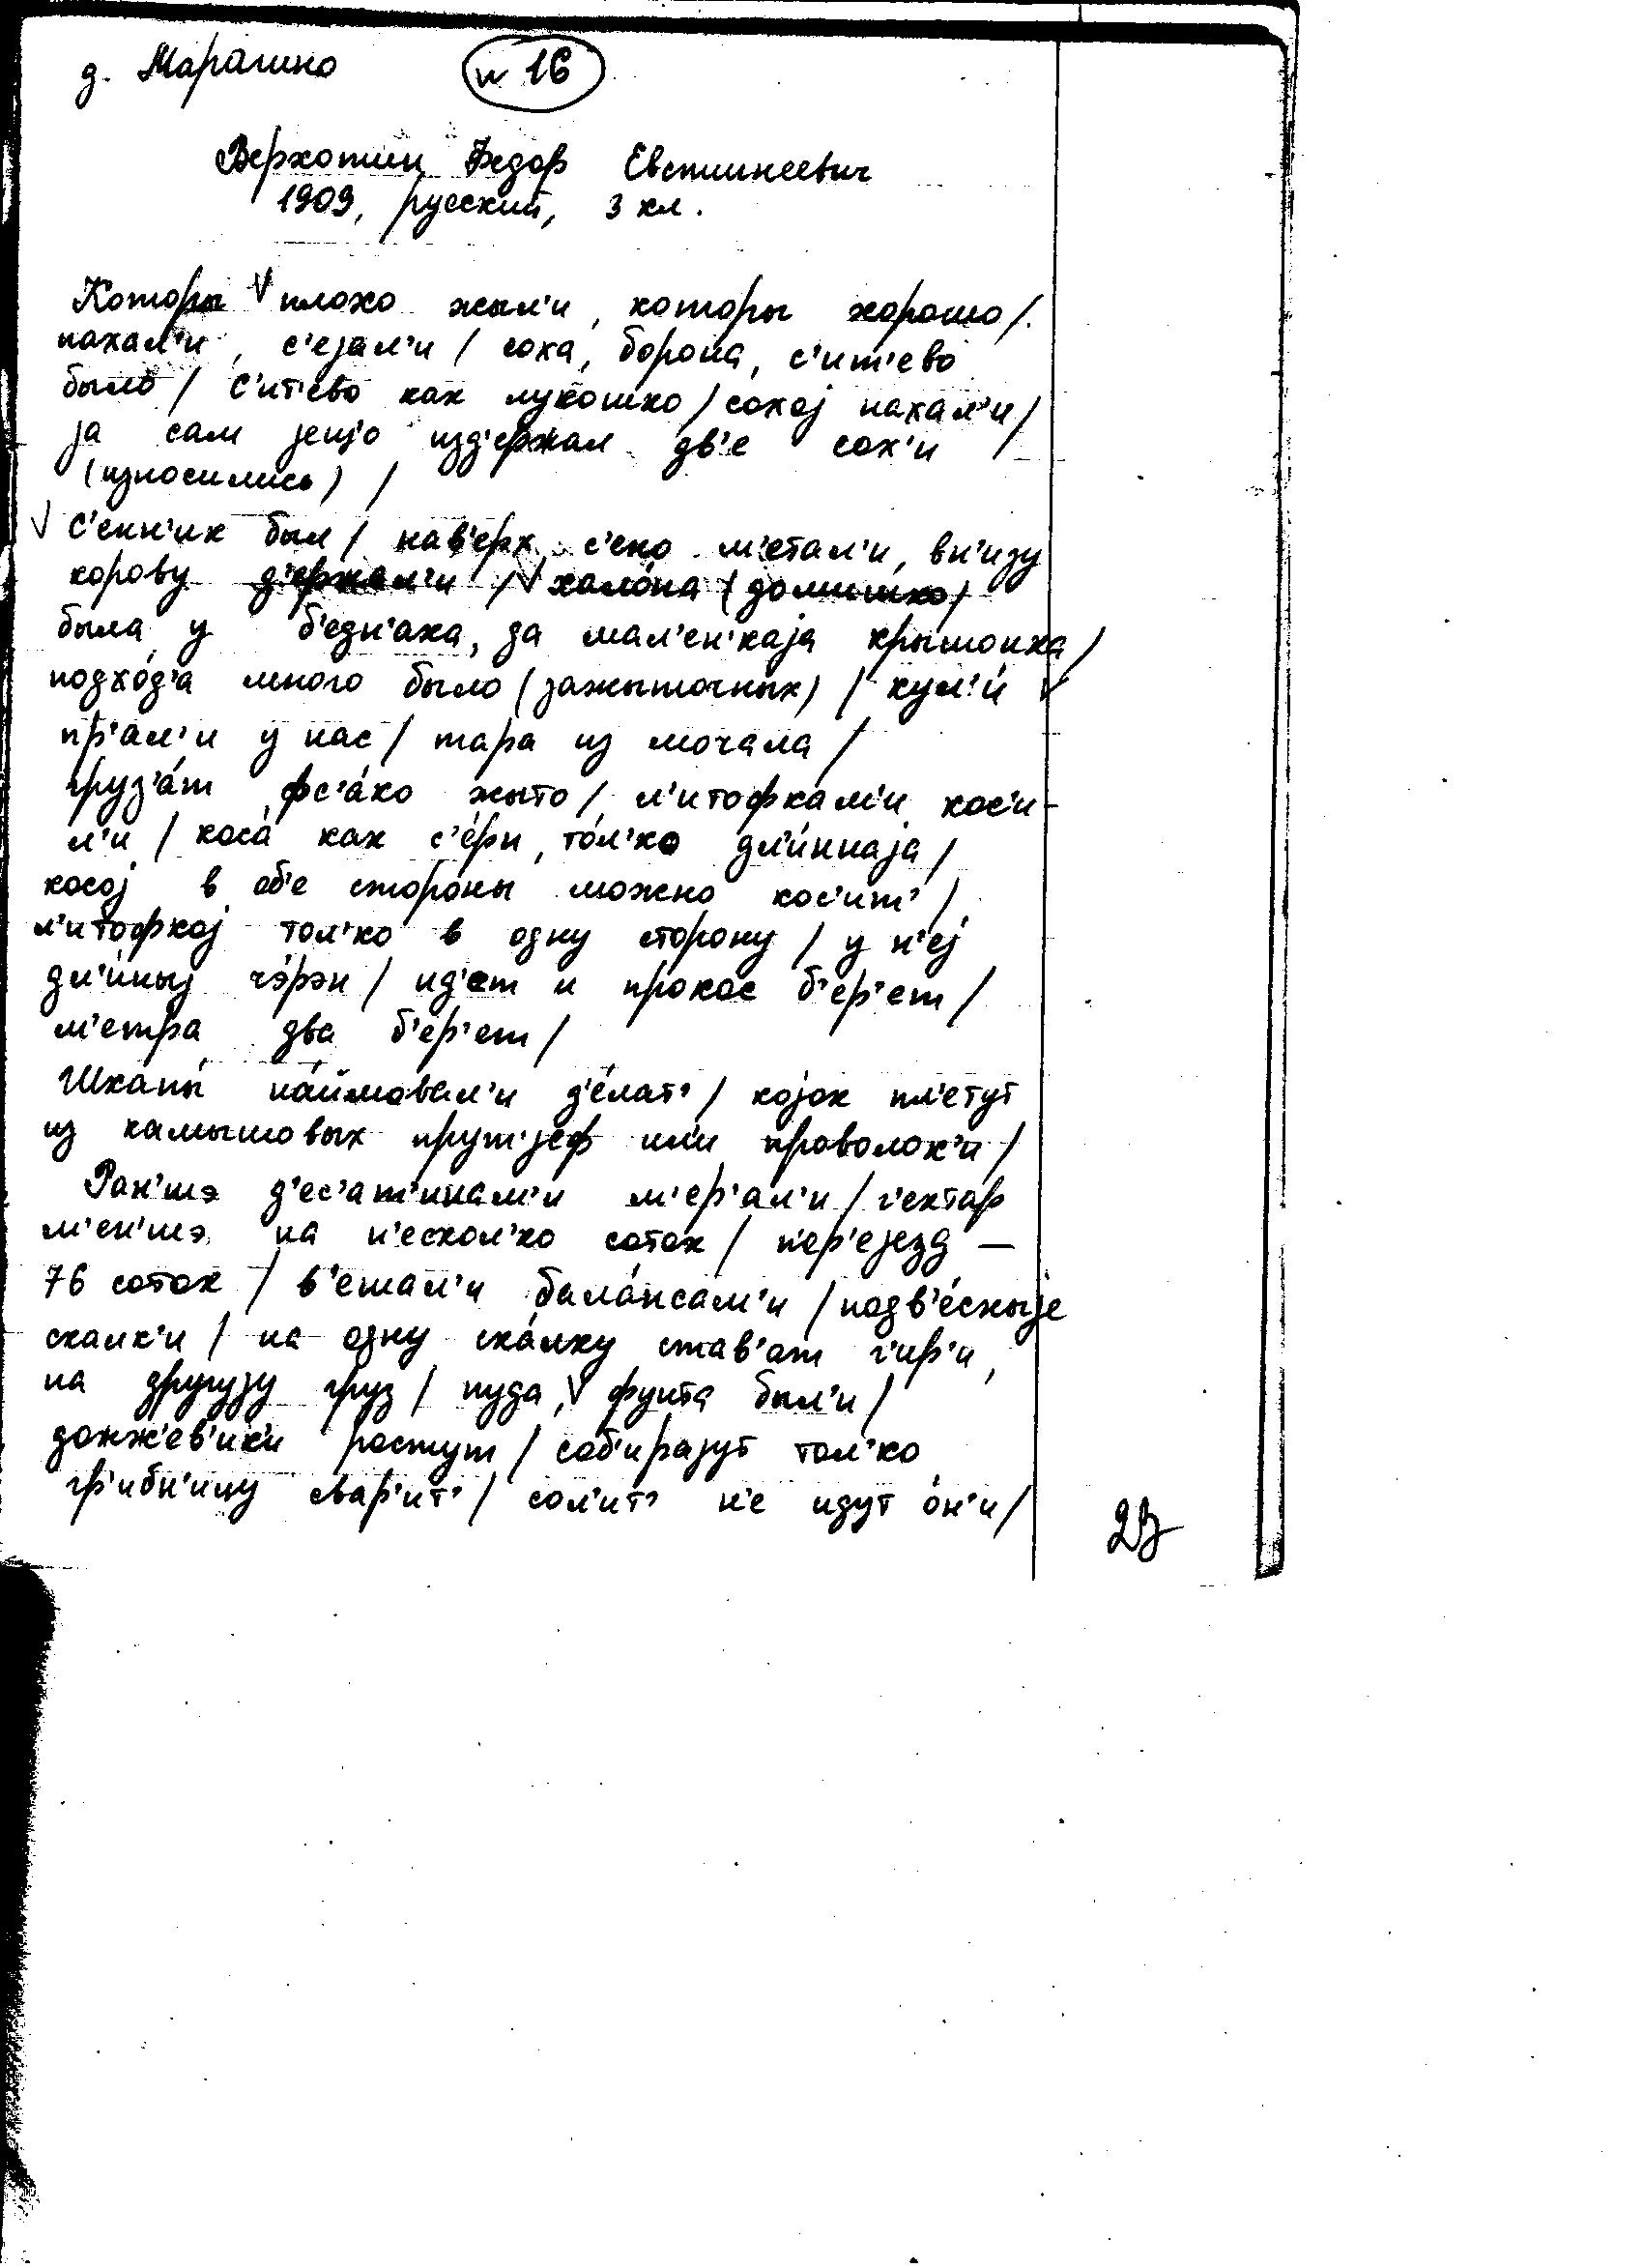 д. Марашино № 16
Верхотин Федор Евстинеевич
1909, русский, 3 кл.
Которы V плохо жыл'и, которы хорошо/.
пахал'и, с'еjал'и / соха, борона, с'ит'ево
было / С'ит'ево как лукошко / сохоj пахал'и /
jа сам jещ'о изд'ержал дв'е сох'и /
(износились) /
V С'енн'ик был / нав'ерх с'ено м'етал'и, вн'изу
корову д'ержал'и / V хало́па (домишко)
была у б'едн'ака, да мал'ен'каjа крышонка /
подхо́д'а много было (зажыточных) / кул'и́ V
пр'ал'и у нас / тара из мочала /
груз'а́т фс'а́ко жыто / л'итофкам'и кос'и-
л'и / коса́ как с'е́рп, то́л'ко дл'и́ннаjа /
косоj в об'е стороны можно кос'ит' /
л'итофкоj тол'ко в одну сторону / у н'еj
дл'и́ныj чэ́рэн / ид'ет и прокос б'ер'ет /
м'етра два б'ер'ет /
Шкапы́ на́ймовал'и д'е́лат' / коjок пл'етут
из камышовых прут'jеф ил'и проволок'и /
Ран'шэ д'ес'ат'инам'и м'ер'ал'и / г'ектар
м'ен'шэ на н'ескол'ко соток / п'ер'еjезд —
76 соток / в'ешал'и бала́нсам'и / подв'е́сныjе
скалк'и / на одну ска́лку став'ат г'ир'и,
на другуjу груз / пуда, V фунта был'и /
донж'ев'ик'и растут / соб'ираjут тол'ко
гр'ибн'ицу свар'ит' / сол'ит' н'е идут о́н'и /